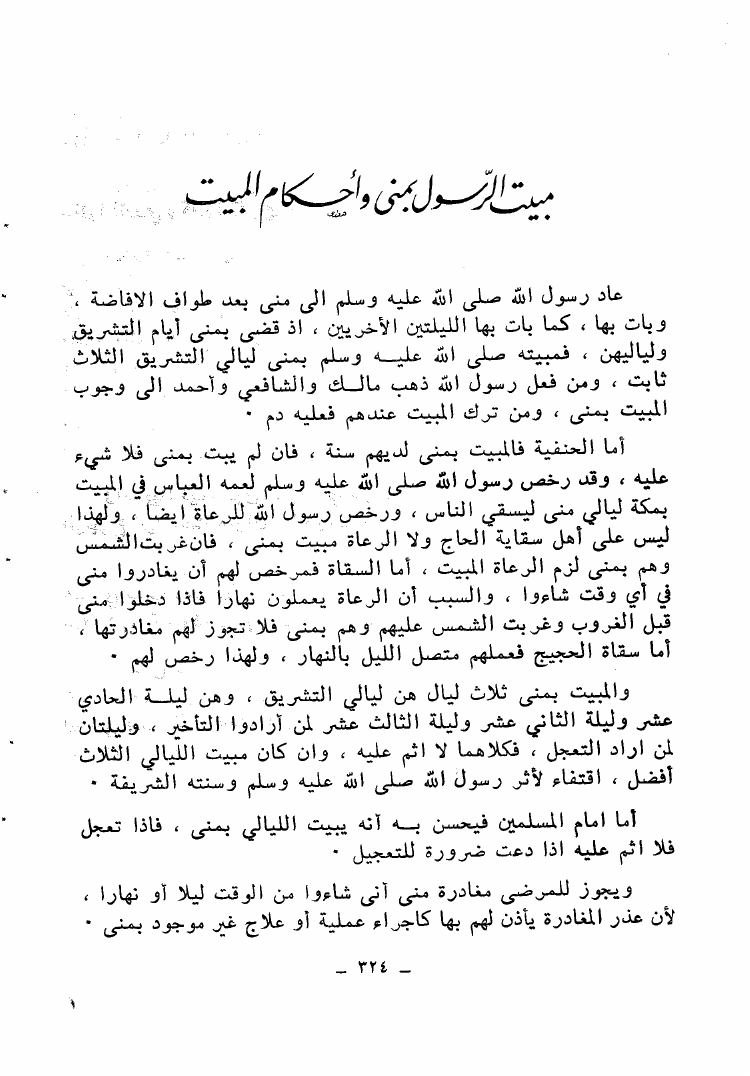 مبيت الرّسول بمنى وأحكام المبيت
عاد رسول الله صلى الله عليه وسلم الى منى بعد طواف الافاضة ،
وبات بها ، كما بات بها الليلتين الأخريين ، اذ قضى بمنى أيام التشريق
ولياليهن ، فمبيته صلى الله عليه وسلم بمنى ليالي التشريق الثلاث
ثابت ، ومن فعل رسول الله ذهب مالك والشافعي وأحمد الى وجوب
المبيت بمنى ، ومن ترك المبيت عندهم فعليه دم ٠
أما الحنفية فالمبيت بمنى لديهم سنة ، فان لم يبت بمنى فلا شيء
عليه ، وقد رخص رسول الله صلى الله عليه وسلم لعمه العباس في المبيت
بمكة ليالي منى ليسقي الناس ، ورخص رسول الله للرعاة ايضا ، ولهذا
ليس على أهل سقاية الحاج ولا الرعاة مبيت بمنى ، فان غربت الشمس
وهم بمنى لزم الرعاة المبيت ، أما السقاة فمرخص لهم أن يغادروا منى
في أي وقت شاءوا ، والسبب أن الرعاة يعملون نهارا فاذا دخلوا منى
قبل الغروب وغربت الشمس عليهم وهم بمنى فلا تجوز لهم مغادرتها ،
أما سقاة الحجيج فعملهم متصل الليل بالنهار ، ولهذا رخص لهم ٠
والمبيت بمنى ثلاث ليال هن ليالي التشريق ، وهن ليلة الحادي
عشر وليلة الثاني عشر وليلة الثالث عشر لمن أرادوا التأخير ، وليلتان
لمن اراد التعجل ، فكلاهما لا اثم عليه ، وان كان مبيت الليالي الثلاث
أفضل ، اقتفاء لأثر رسول الله صلى الله عليه وسلم وسنته الشريفة ٠
أما امام المسلمين فيحسن به أنه يبيت الليالي بمنى ، فاذا تعجل
فلا اثم عليه اذا دعت ضرورة للتعجيل ٠
ويجوز للمرضى مغادرة منى أنى شاءوا من الوقت ليلا أو نهارا ،
لأن عذر المغادرة يأذن لهم بها كاجراء عملية أو علاج غير موجود بمنى ٠
_ ٣٢٤ _